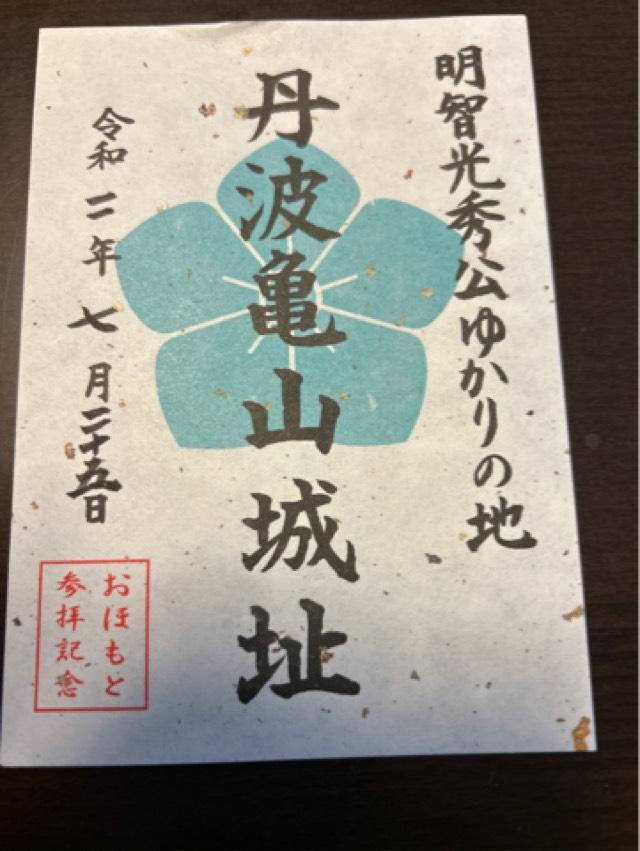 明智光秀公ゆかりの地
丹波亀山城址
令和二年七月二十五日
おほもと
参拝記念